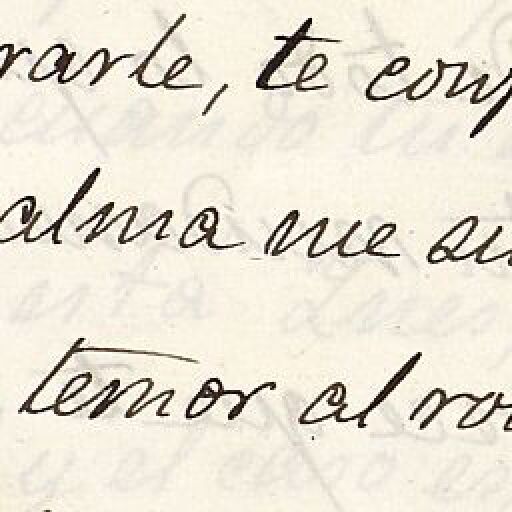 rarle, te conf
alma me su
temor al ro